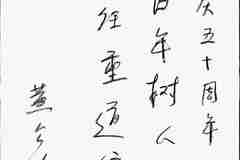 庆五十周年
百年树人
任重道远